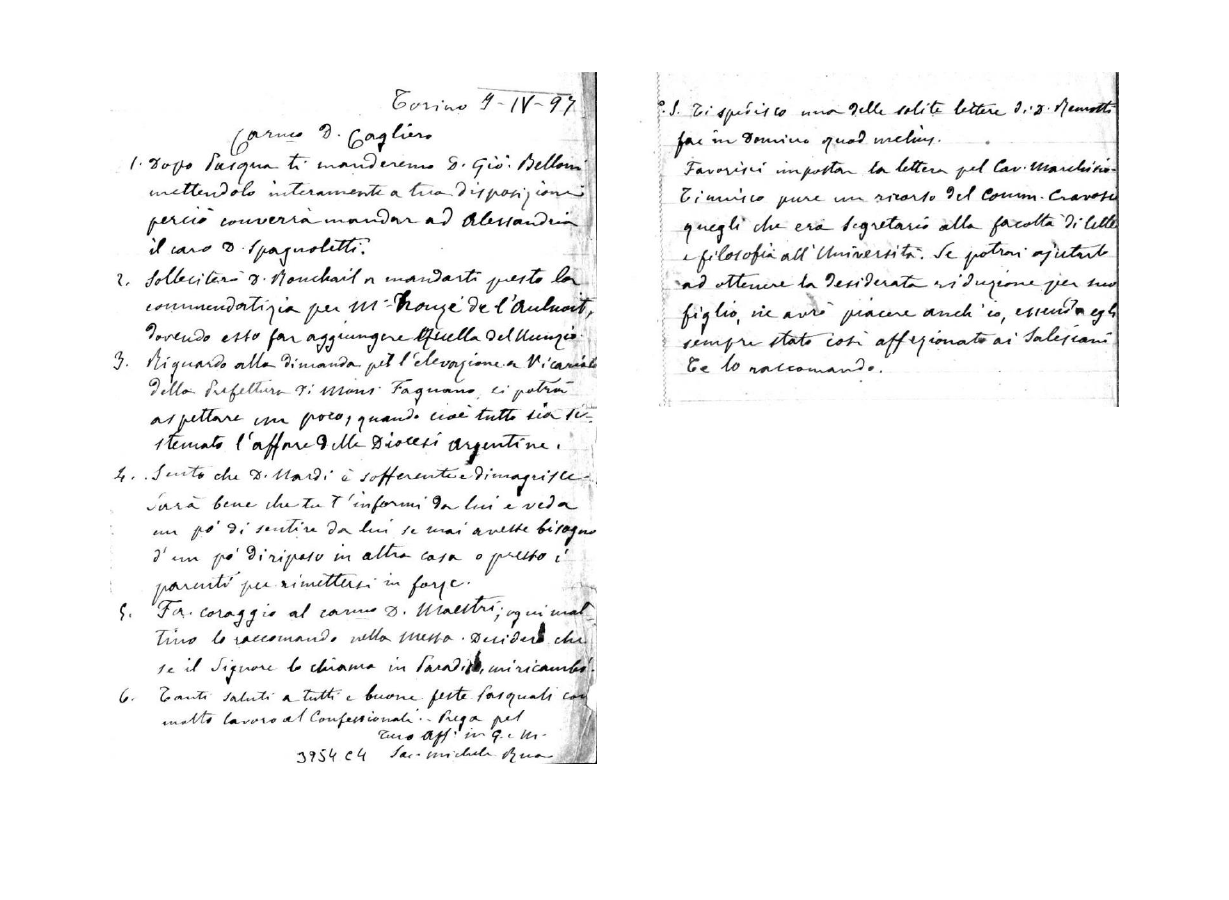 Torino 9-IV-97
Carmo D. Cagliero
1. Dopo Pasqua ti manderemo D. Gio. Belloni
mettendolo interamente a tua disposizione
perciò converrà mandar ad Alessandria
il caro D. Spagnoletti.
2. Solleciterò D. Ronchail a mandarti presto la
commendatizia per Mr
dovendo esso far aggiungere quella del Nunzio.
3. Riguardo alla dimanda per l'elevazione a Vicariato
della Prefettura di Mons. Fagnano, si potrà
aspettare un poco, quando cioè tutto sia si-
stemato l'affare delle Diocesi Argentine.
4. Sento che D. Nardi è sofferente e dimagrisce
Sarà bene che tu t'informi da lui e veda
un po' di sentire da lui se mai avesse bisogno
d'un po' di riposo in altra casa o presso i
parenti per rimettersi in forze.
5. Fa coraggio al carmo D. Maestri; ogni mat-
tino lo raccomando nella Messa. Desidero che
se il Signore lo chiama in Paradiso, mi ricambi.
6. Tanti saluti a tutti e buone feste Pasquali con
molto lavoro al Confessionale. Prega pel
Tuo Aff. in G. e M.
3954 C4 Sac. Michele Rua
P.S. Ti spedisco una delle solite lettere di D. Remotti
fac in Domino quod melius.
Favorisci impostar la lettera pel Cav. Marchisio.
Ti unisco pure un ricorso del Comm.
quegli che era Segretario alla facoltà di lette
e filosofia all'Università. Se potrai ajutarlo
ad ottenere la desiderata riduzione per suo
figlio, ne avrò piacere anch'io, essendo egli
sempre stato così affezionato ai Salesiani
Te lo raccomando.